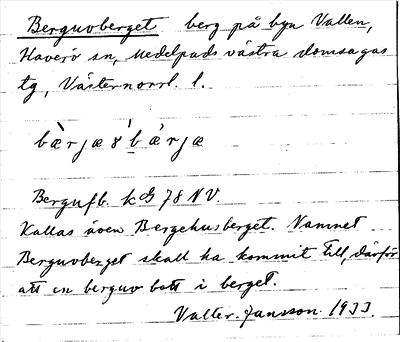 Berguvberget berg på byn Vallen,
Haverö sn, Medelpads västra domsagas
tg, Västernorrl. l.
bæ̀rjæ8 b̀æ̀rjæ
Bergufb. kG 78 NV.
Kallas även Bergehusberget. Namnet
Berguvberget skall ha kommit till, därför
att en berguv bott i berget.
Valter Jansson 1933.